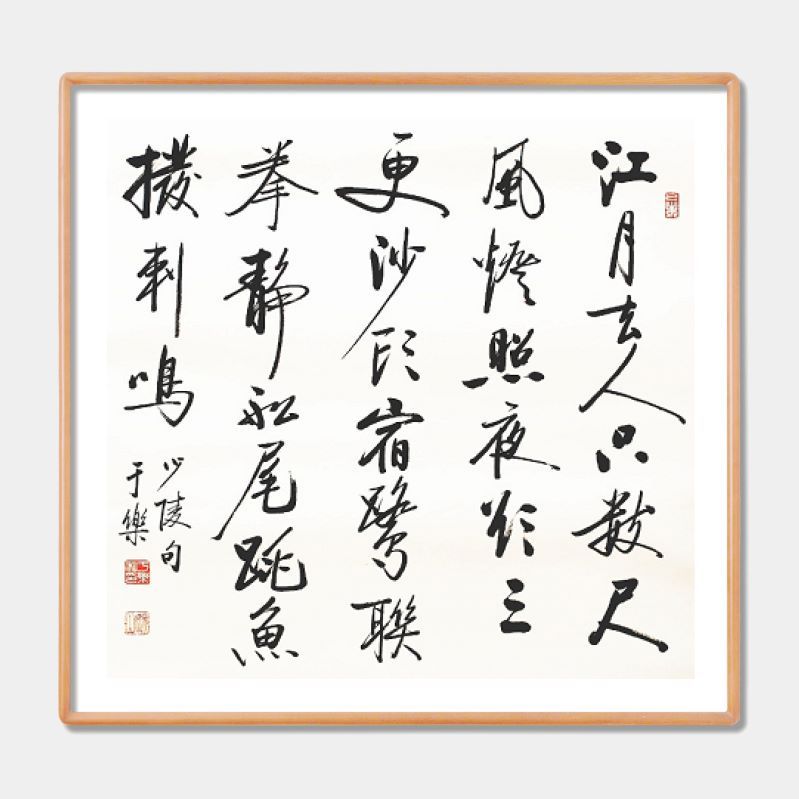 江月去人只數尺
風燈照夜欲三
更沙頭宿鷺聯
拳靜船尾跳魚
撥剌鳴
少陵句
于樂